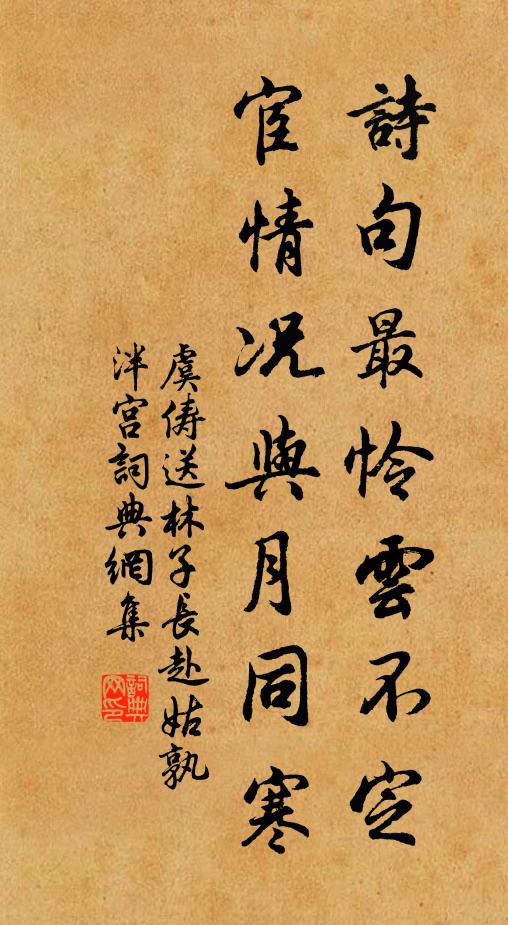 詩句最怜雲不定
宦情况與月同寒
虞儔送林子長赴姑孰
泮宮詞典網集
詞典網印